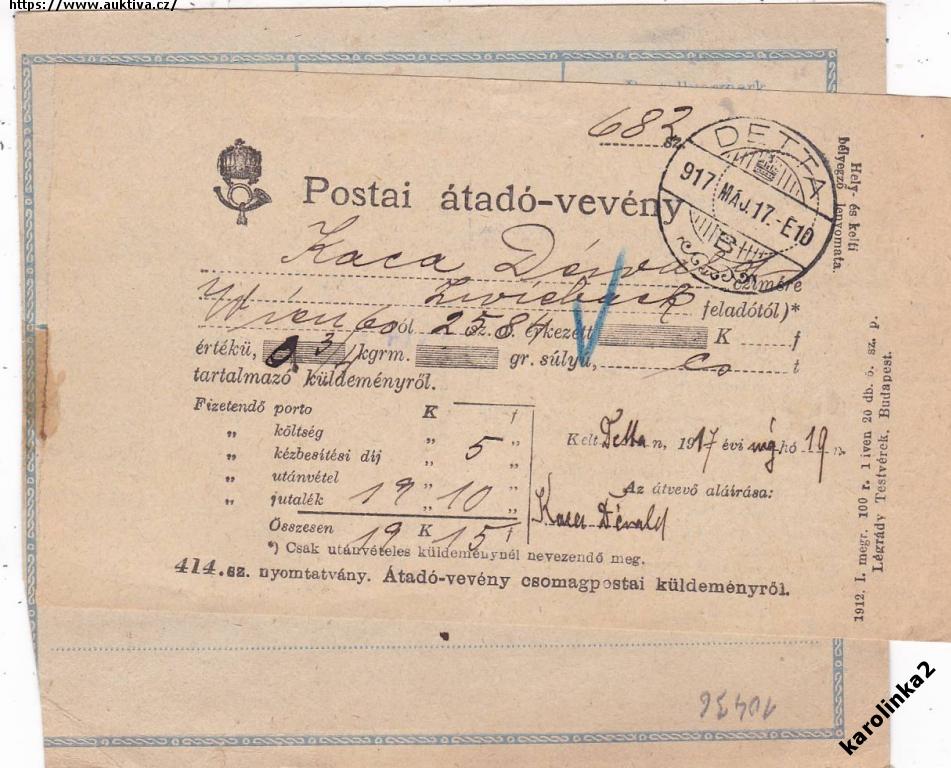 https://www.auktiva.cz/
682 sz.
DETTA
917 MÁJ.17.-E10
B
Postai átadó-vevény
Kaca czimére
feladótól)*
ból 2584 sz. érkezett K f
értékü, 3 kgrm. gr. súlyú, cs t
tartalmazó küldeményről.
Fizetendő porto K f
„ költség „ „
„ kézbesitési dij „ 5 „
„ utánvétel „ „
„ jutalék 19 „ 10 „
Összesen 19 K 15 f
Kelt Detta n, 1917 évi hó 19 n.
Az átvevő aláirása:
*) Csak utánvételes küldeménynél nevezendő meg.
414. sz. nyomtatvány. Átadó-vevény csomagpostai küldeményről.
Hely- és kelti
bélyegző lenyomata.
1912. I. megr. 100 r. 1 iven 20 db. ő. sz. p.
Légrády Testvérek, Budapest.
10436
karolinka2